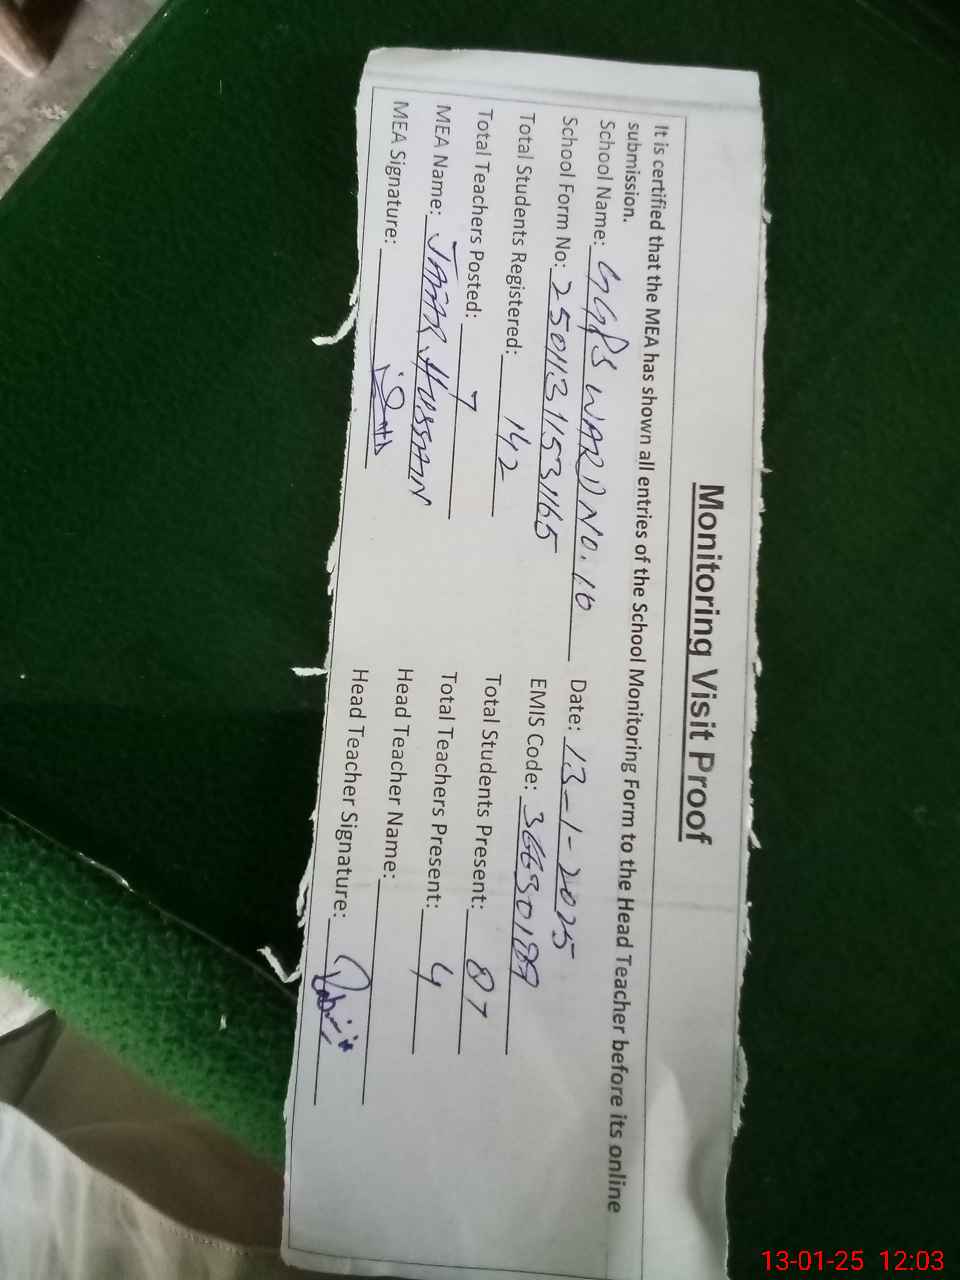 Monitoring Visit Proof
It is certified that the MEA has shown all entries of the School Monitoring Form to the Head Teacher before its online
submission.
School Name: GGPS WARD NO. 10 Date: 13-1-2025
School Form No: 25011311531165 EMIS Code: 36630189
Total Students Registered: 142 Total Students Present: 87
Total Teachers Posted: 7 Total Teachers Present: 4
MEA Name: JAFAR HUSSAIN Head Teacher Name:
MEA Signature: Head Teacher Signature:
13-01-25 12:03